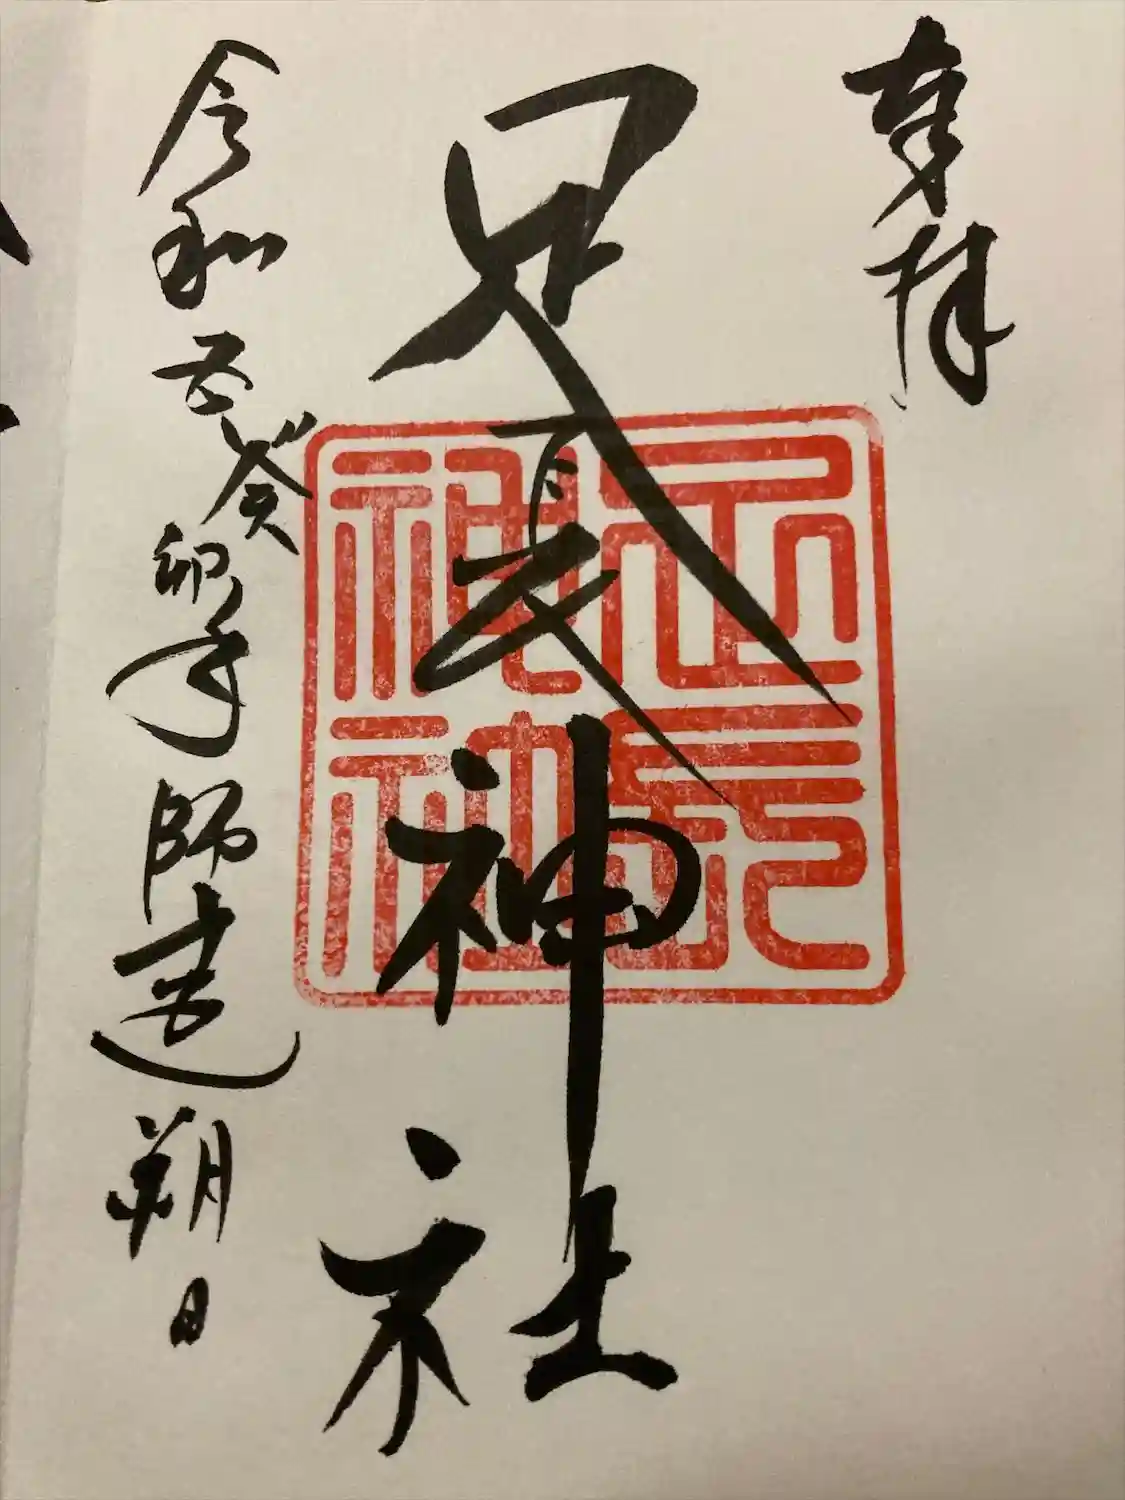 奉拝
足長神社
足長
神社
令和五癸卯年師走朔日